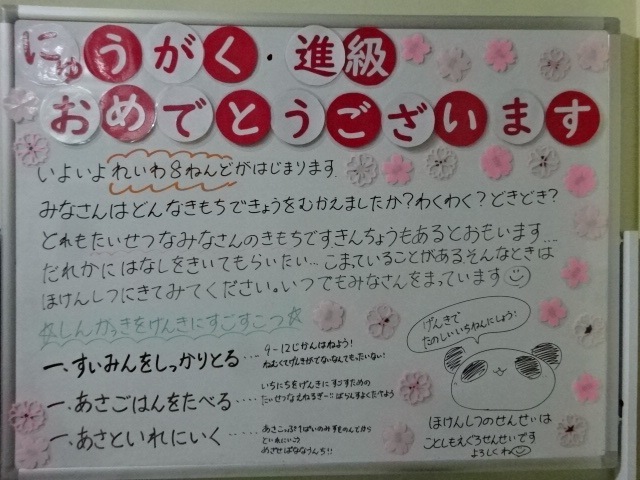 にゅうがく・進級
おめでとうございます
いよいよれいわ8ねんどがはじまります
みなさんはどんなきもちできょうをむかえましたか?わくわく?どきどき?
どれもたいせつなみなさんのきもちです。きんちょうもあるとおもいます…
だれかにはなしをきいてもらいたい…こまっていることがあるそんなときは
ほけんしつにきてみてください。いつでもみなさんをまっています
☆しんがっきをげんきにすごすこつ☆
一、すいみんをしっかりとる……
9-12じかんはねよう!
ねむくてげんきがでないなんてもったいない!
一、あさごはんをたべる……
いちにちをげんきにすごすための
たいせつなえねるぎー!!ばらんすよくたべよう
一、あさといれにいく……
あさこっぷ1ぱいのみずをのんでから
といれにいこう
めざせばななうんち!!
げんきで
たのしいいちねんにしよう!
ほけんしつのせんせいは
ことしもえぐろせんせいです
よろしくね